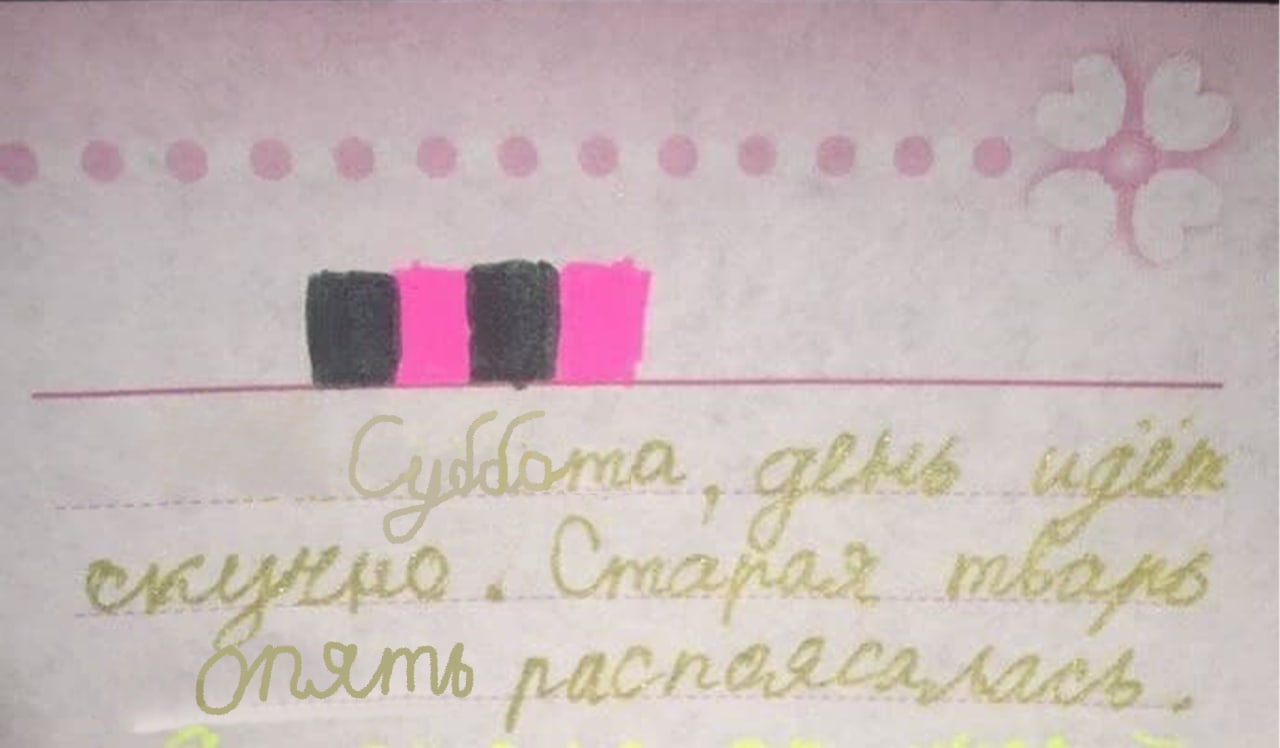 Суббота, день идёт
скучно. Старая тварь
опять распоясалась.